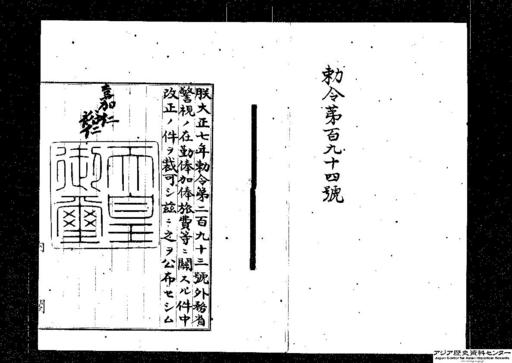 勅令第百九十四號
朕大正七年勅令第二百九十三號外務省
警視ノ在勤俸加俸旅費等ニ關スル件中
改正ノ件ヲ裁可シ茲ニ之ヲ公布セシム
嘉仁
裕仁
天皇
御璽
内閣
アジア歴史資料センター
Japan Center for Asian Historical Records